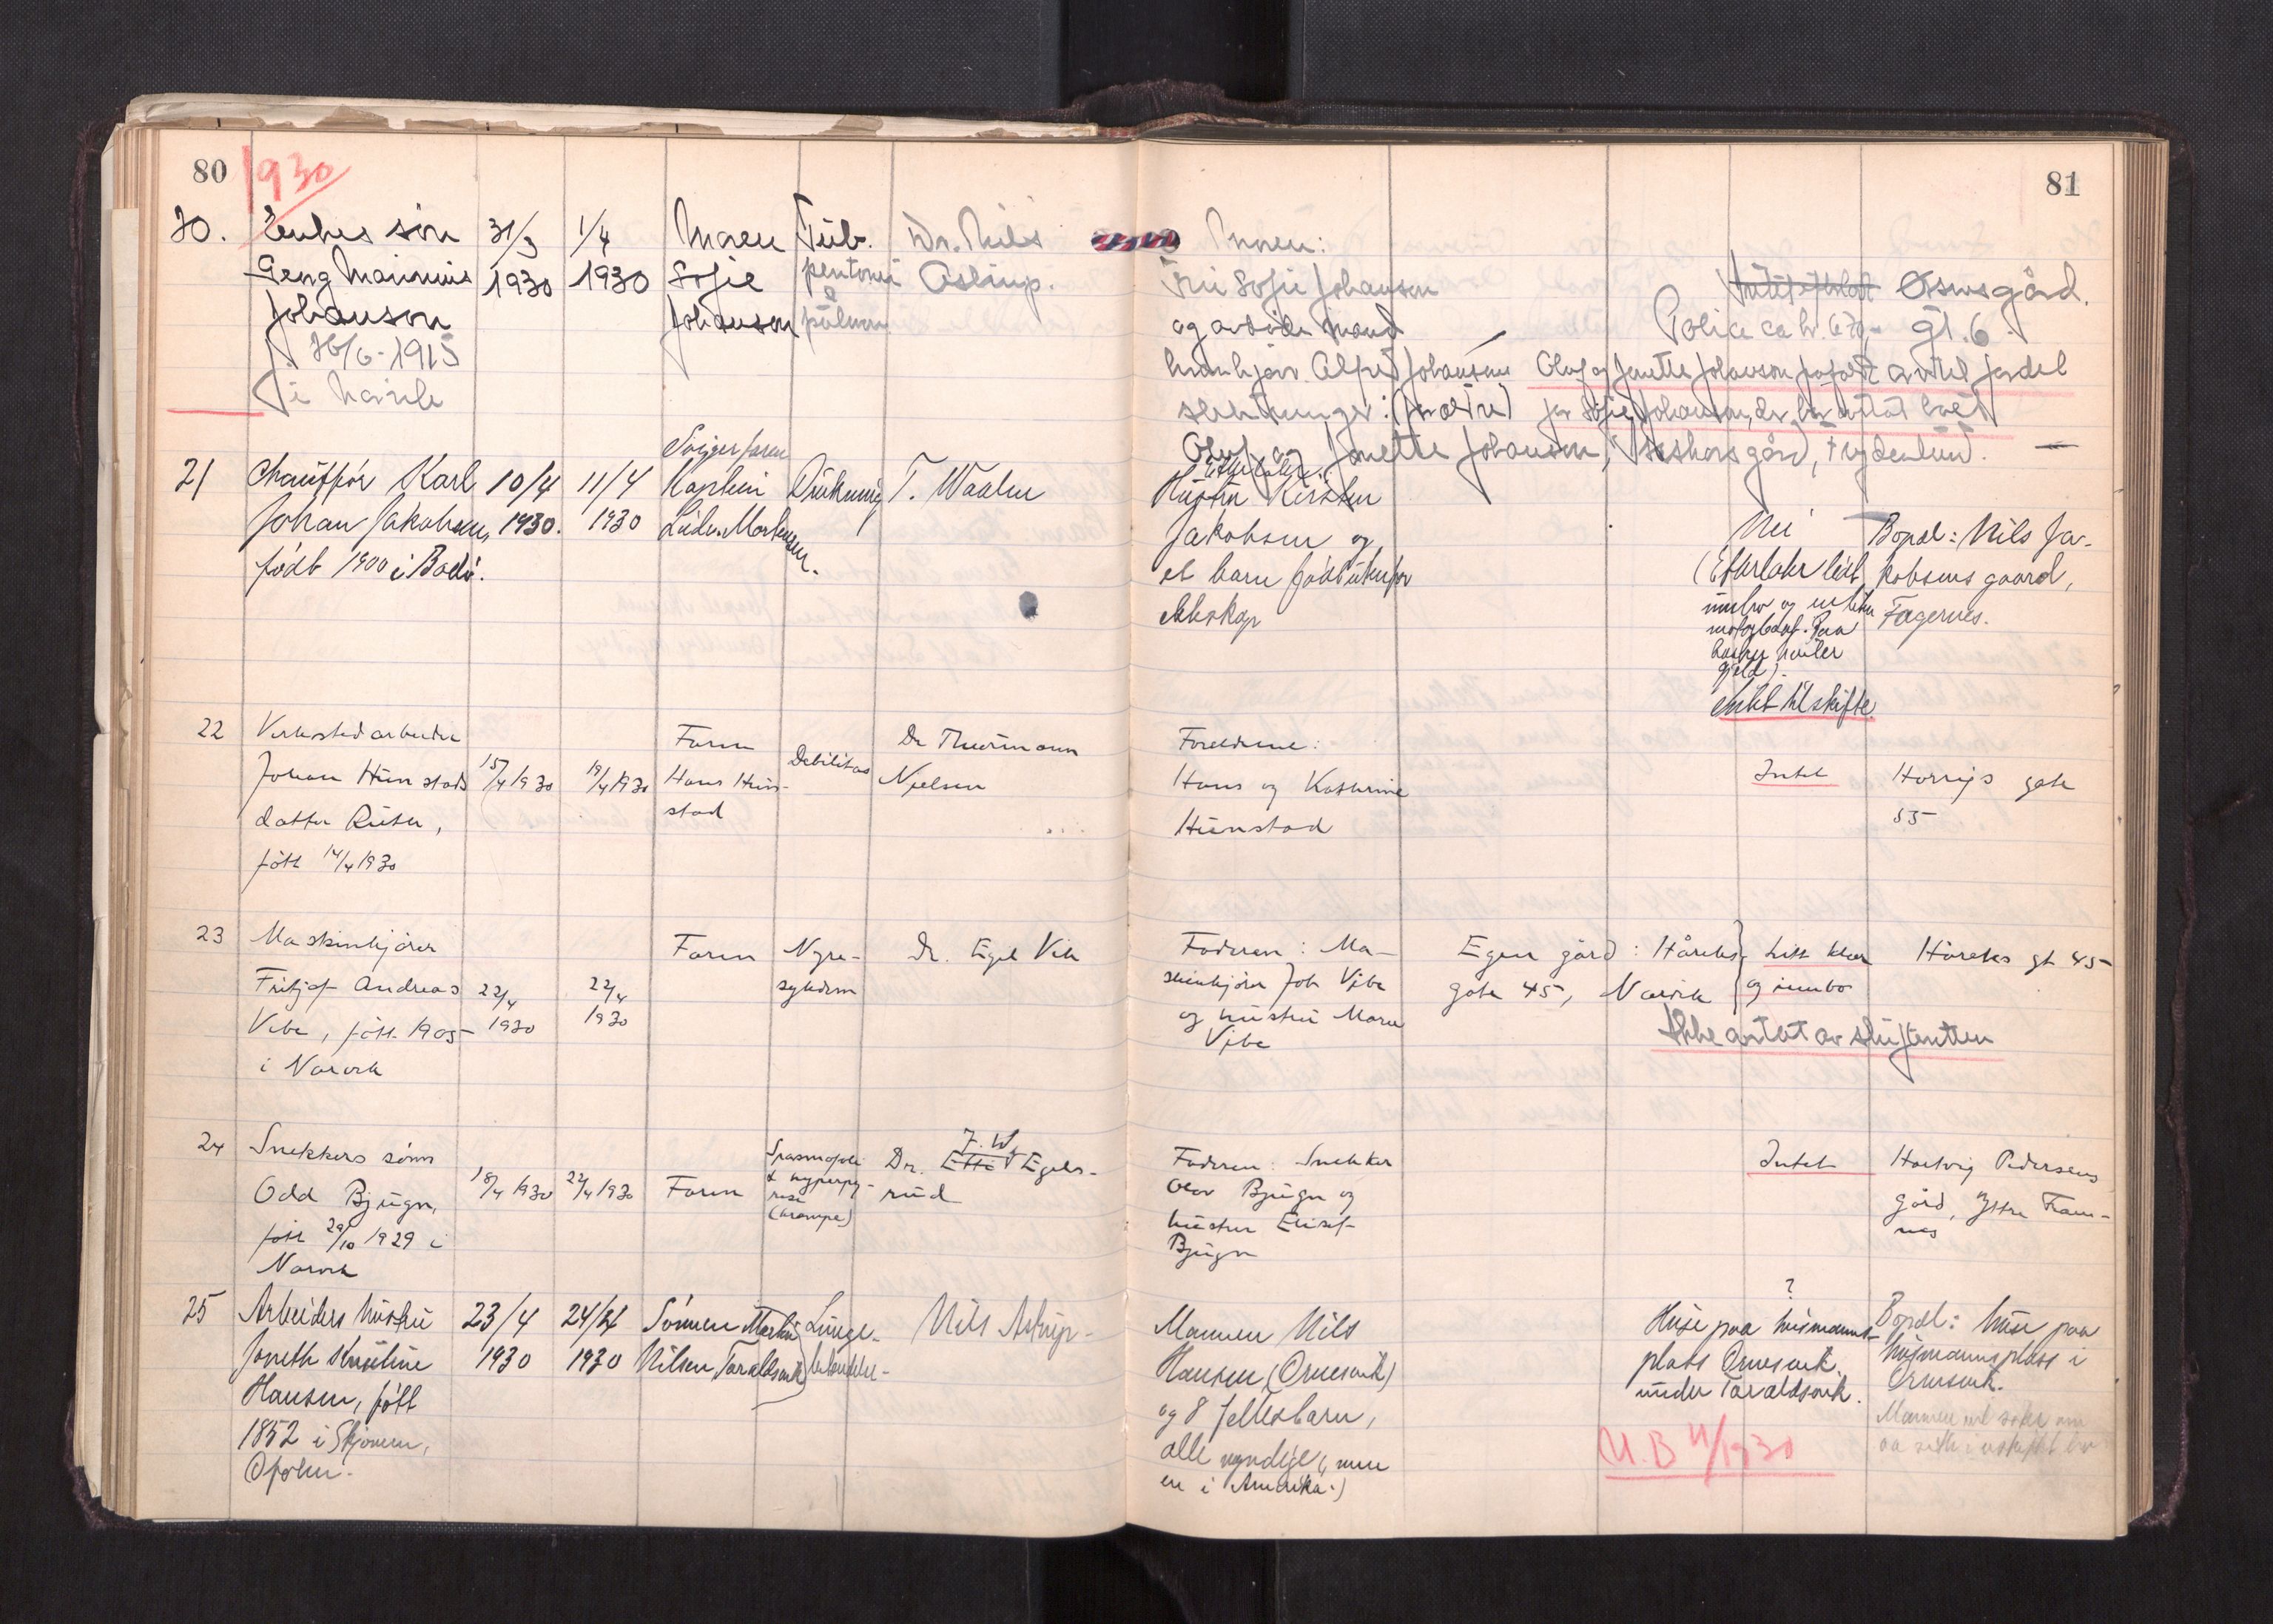 80
1930
81
20.
Enkes sön
Georg Marinius
Johanson
f. 26/6-1915
i Narvik
31/3
1930
1/4
1930
Moren
Sofie
Johanson
Tub.
peritonei
Dr. Nils
Astrup.
Moren:
Fru Sofie Johanson
og avdöde mand
Alfred Johansens
Olaf og Janette Johanson
Janette Johanson, Frydenlund.
Police ca kr. 670,-
gård.
gt. 6
21
Chauffør Karl
Johan Jakobsen,
født 1900 i Bodø.
10/4
1930.
11/4
1930
Svigerfaren
Kaptein
Ludv. Mortensen.
Drukning
T. Waalen
Efterlater:
Hustru Kirsten
Jakobsen og
et barn født utenfor
ekteskap
Nei
(Efterlater litt
innbo og en liten
motorbaat. Paa
baaten hviler
gjeld).
enkel til skifte.
Bopæl: Nils Ja-
kobsens gaard,
Fagernes.
22
Verkstedarbeider
Johan Hunstads
datter Ruth,
født 14/4 1930
15/4 1930
19/4 1930
Faren
Hans Hun-
stad
Debilitas
Dr Thurmann
Nielsen
Foreldrene:
Hans og Kathrine
Hunstad
Intet
gate
55
23
Maskinkjører
Fritjof Andreas
Vibe, født 1905
i Narvik
22/4
1930
22/4
1930
Faren
Nyre-
sykdom
Dr. Egil Vik
Faderen: Ma-
skinkjører Joh Vibe
og hustru Maren
Vibe
Egen gård: Håreks
gate 45, Narvik
Litt klær
og innbo
Håreks gt 45
Ikke antatt av skifteretten
24
Snekkers sønn
Odd Bjugn,
født 29/10 1929 i
Narvik
18/4 1930
22/4 1930
Faren
Spasmofili
& hyperpy-
rexi
(krampe)
Dr. J. W. Egels-
rud
Faderen: Snekker
Olav Bjugn og
hustru Elisef
Bjugn
Intet
Hartvig Pedersens
gård, Ytre Fram-
nes
25
Arbeiders hustru
Janeth Kristine
Hansen, født
1852 i Skjomen,
Ofoten.
23/4
1930
24/4
1930
Sønnen Martin
Nilsen, Taraldsvik
Lunge-
betendelse-
Nils Astrup-
Mannen Nils
Hansen (Ornesvik)
og 8 fellesbarn,
alle myndige (, men
en i Amerika.)
?
Huse paa husmanns-
plass Ornesvik
under Taraldsvik.
U.B 11/1930
Bopæl: huse paa
husmannsplass i
Ornesvik.
Mannen vil søke om
aa sitte i uskiftet bo